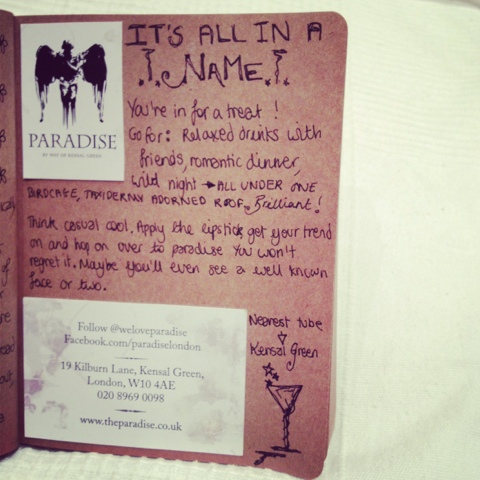 IT'S ALL IN A
NAME.
PARADISE
BY WAY OF KENSAL GREEN
You're in for a treat!
Go for: Relaxed drinks with
friends, romantic dinner,
wild night → ALL UNDER ONE
BIRDCAGE, TAXIDERMY ADORNED ROOF. Brilliant!
Think casual cool. Apply the lipstick, get your trend
on and hop on over to paradise You won't
regret it. Maybe you'll even see a well known
face or two.
Follow @weloveparadise
Facebook.com/paradiselondon
19 Kilburn Lane, Kensal Green,
London, W10 4AE
020 8969 0098
www.theparadise.co.uk
Nearest tube
Kensal Green